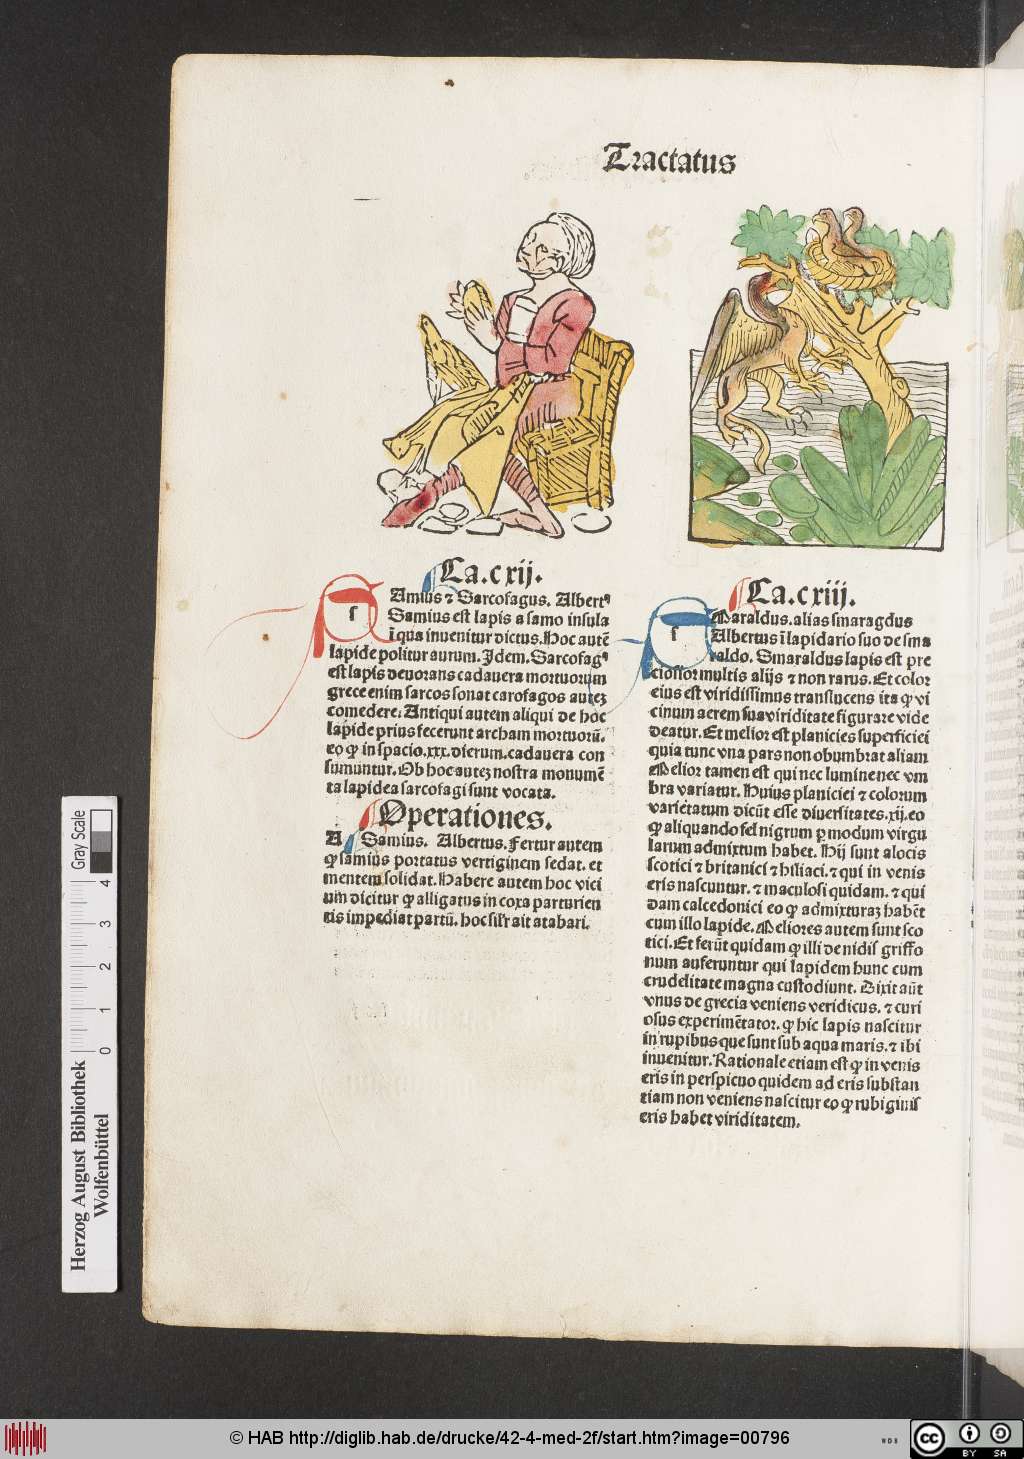 Tractatus
Ca.cxij.
s
Amius ⁊ Sarcofagus. Albertꝰ
Samius est lapis a samo insula
ī qua inuenitur dictus. Hoc autē
lapide politur aurum. Idem. Sarcofagꝰ
est lapis deuorans cadauera mortuorum
grece enim sarcos sonat caro fagos auteꝫ
comedere. Antiqui autem aliqui de hoc
lapide prius fecerunt archam mortuorū.
eo ꝙ in spacio.xxx.dierum.cadauera con
sumuntur. Ob hoc auteꝫ nostra monumē
ta lapidea sarcofagi sunt vocata.
Operationes.
A Samius. Albertus. Fertur autem
ꝙ samius portatus vertiginem sedat. et
mentem solidat. Habere autem hoc vici
um dicitur ꝙ alligatus in coxa parturien
tis impediat partū. hoc silr ait atabari.
Ca.cxiij.
s
Maraldus.alias smaragdus
Albertus ī lapidario suo de sma
raldo. Smaraldus lapis est pre
ciosior multis alijs ⁊ non rarus. Et color
eius est viridissimus translucens ita ꝙ vi
cinum aerem sua viriditate figurare vide
deatur. Et melior est planicies superficiei
quia tunc vna pars non obumbrat aliam
Melior tamen est qui nec lumine nec vm
bra variatur. Huius planiciei ⁊ colorum
varietatum dicūt esse diuersitates.xij.eo
ꝙ aliquando fel nigrum ꝑ modum virgu
larum admixtum habet. Hij sunt a locis
scotici ⁊ britanici ⁊ hiliaci. ⁊ qui in venis
eris nascuntur. ⁊ maculosi quidam. ⁊ qui
dam calcedonici eo ꝙ admixturaꝫ habēt
cum illo lapide. Meliores autem sunt sco
tici. Et ferūt quidam ꝙ illi de nidis griffo
num auferuntur qui lapidem hunc cum
crudelitate magna custodiunt. Dixit aūt
vnus de grecia veniens veridicus. ⁊ curi
osus experimētator. ꝙ hic lapis nascitur
in rupibus que sunt sub aqua maris. ⁊ ibi
inuenitur. Rationale etiam est ꝙ in venis
eris in perspicuo quidem ad eris substan
tiam non veniens nascitur eo ꝙ rubiginis
eris habet viriditatem.
Gray Scale
4
3
2
1
0
Herzog August Bibliothek
Wolfenbüttel
© HAB http://diglib.hab.de/drucke/42-4-med-2f/start.htm?image=00796
WDB
cc
BY SA